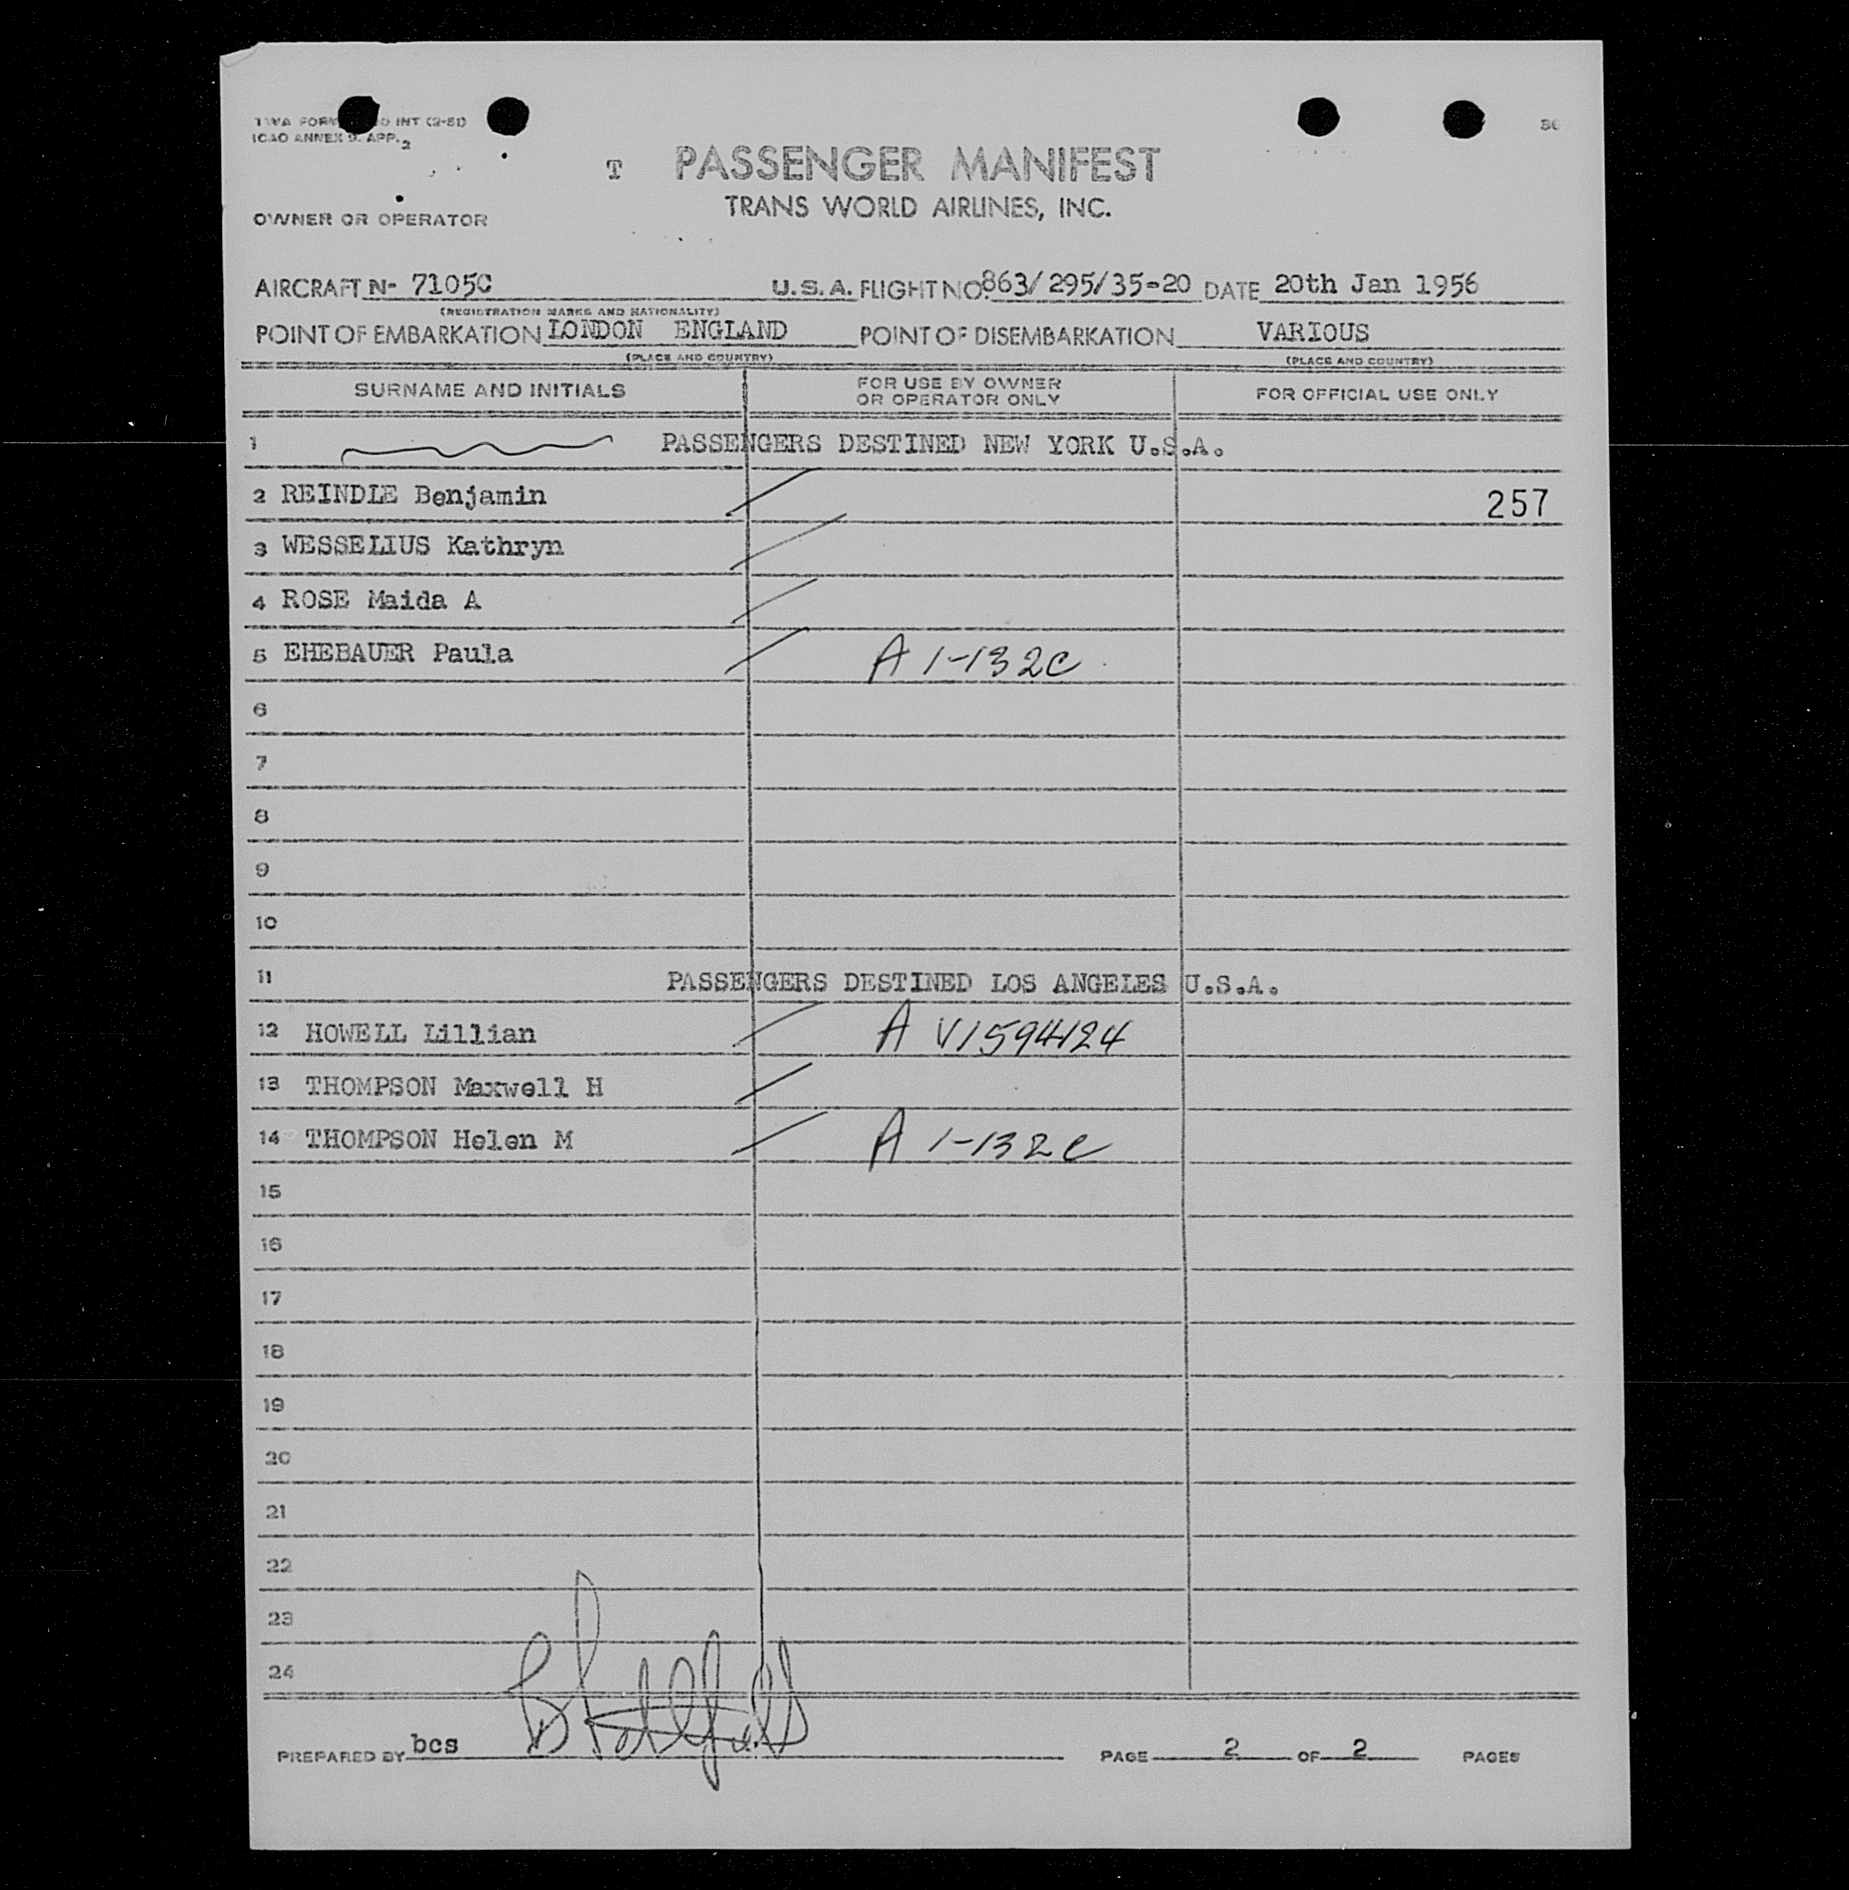 INT (2-51)
ICAO ANNEX 9. APP. 2
T PASSENGER MANIFEST
TRANS WORLD AIRLINES, INC.
OWNER OR OPERATOR
AIRCRAFT N- 7105C U.S.A. FLIGHT NO. 863/295/35-20 DATE 20th Jan 1956
(REGISTRATION MARKS AND NATIONALITY)
POINT OF EMBARKATION LONDON ENGLAND POINT OF DISEMBARKATION VARIOUS
(PLACE AND COUNTRY) (PLACE AND COUNTRY)
SURNAME AND INITIALS FOR USE BY OWNER OR OPERATOR ONLY FOR OFFICIAL USE ONLY
1 PASSENGERS DESTINED NEW YORK U.S.A.
2 REINDLE Benjamin 257
3 WESSELIUS Kathryn
4 ROSE Maida A
5 EHEBAUER Paula A 1-132C
6
7
8
9
10
11 PASSENGERS DESTINED LOS ANGELES U.S.A.
12 HOWELL Lillian A V1594124
13 THOMPSON Maxwell H
14 THOMPSON Helen M A 1-132C
15
16
17
18
19
20
21
22
23
24
PREPARED BY bcs PAGE 2 OF 2 PAGES